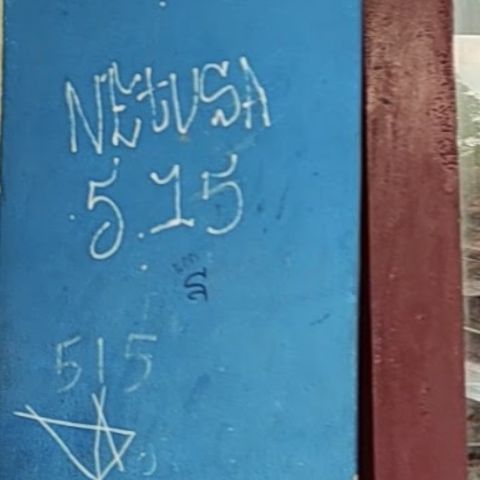 NEtUSA
5.15
515